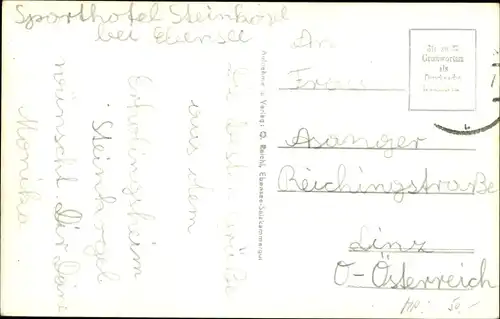 Sporthotel Steinkogl
bei Ebensee
Die besten Grüße
aus dem
Erholungsheim
Steinkogl
wünscht Dir Deine
Monika
Aufnahme u. Verlag: O. Reichl, Ebensee-Salzkammergut
An
Frau
Asanger
Reichingstraße
Linz
O-Österreich
als
Drucksache
50.-